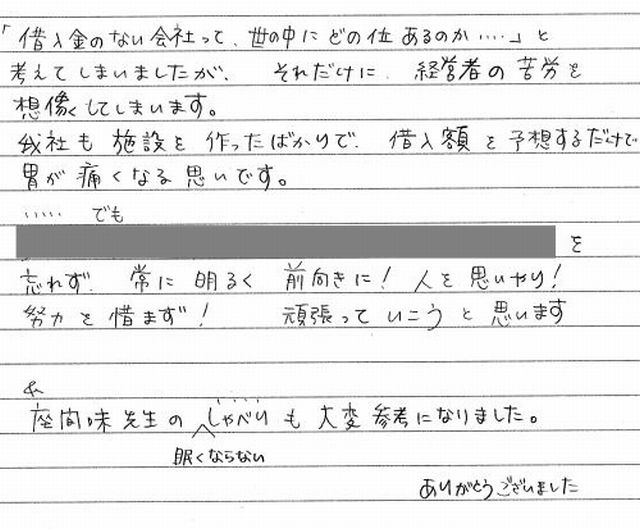 「借入金のない会社って、世の中にどの位あるのか‥‥」と
考えてしまいましたが、それだけに、経営者の苦労を
想像してしまいます。
我社も施設を作ったばかりで、借入額を予想するだけで
胃が痛くなる思いです。
‥‥‥でも
を
忘れず、常に明るく前向きに!人を思いやり!
努力を惜まず! 頑張っていこうと思います
座間味先生のしゃべりも大変参考になりました。
眠くならない
ありがとうございました